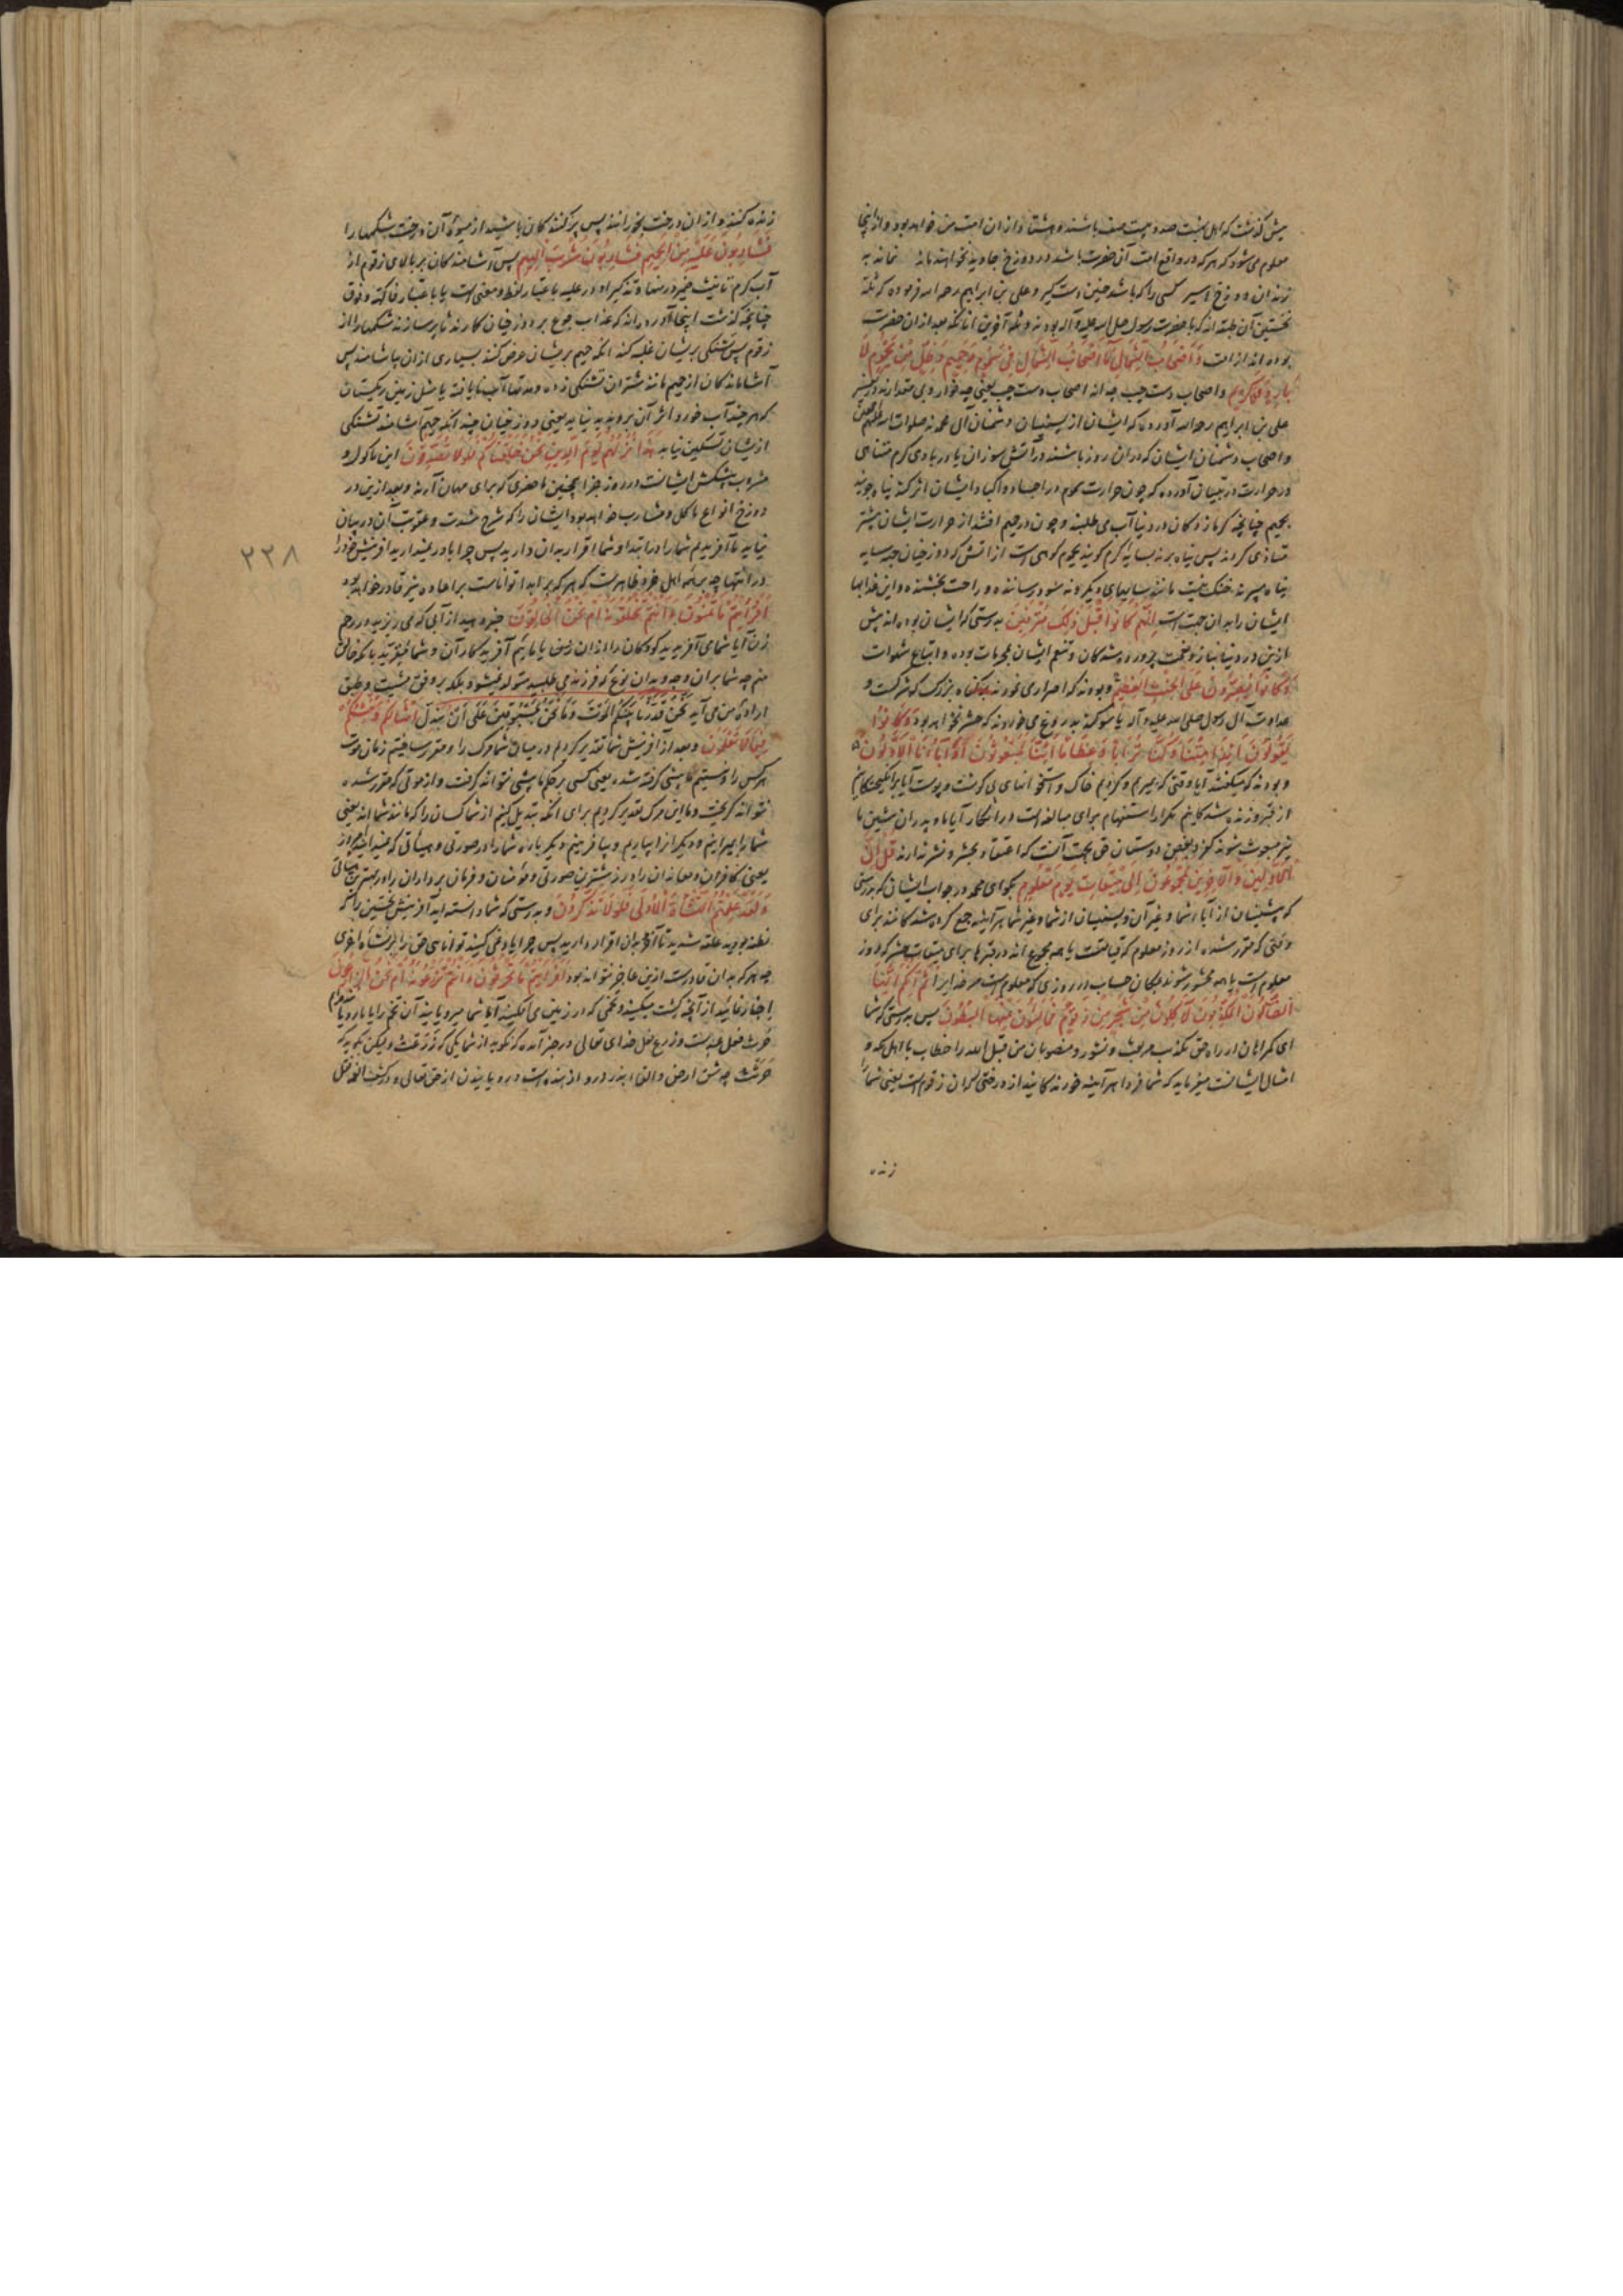 پیش گذشت که اهل بهشت صد و بیست صف باشند و هشتاد از ان امت من خواهد بود و از اینجا
معلوم می شود که هر که در واقع امت آن حضرت باشد در دوزخ جاوید نخواهند ماند نماند به
زندان دوزخ اسیر کسی را که باشد چنین دست گیر و علی بن ابراهیم رحمه الله فرموده که ثلة
نخستین آن طبقه اند که با حضرت رسول صلی الله علیه و آله بودند و ثلة آخرین انانکه بعد از ان حضرت
بوده اند از امت وَأَصْحَابُ الشِّمَالِ مَا أَصْحَابُ الشِّمَالِ فِي سَمُومٍ وَحَمِيمٍ وَظِلٍّ مِنْ يَحْمُومٍ لَا
بَارِدٍ وَلَا كَرِيمٍ و اصحاب دست چپ چه اند اصحاب دست چپ یعنی چه خوار و بی مقدارند
علی بن ابراهیم رحمه الله آورده که ایشان از پیشینیان دشمنان آل محمدند صلوات الله علیهم
و اصحاب دشمنان ایشان که در ان روز باشند در آتش سوزان یا در بادی گرم متناهی
در حرارت در تبیان آورده که چون حرارت سموم در اجساد و اکباد ایشان اثر کند پناه جویند
بحمیم چنانچه گرمازدگان در دنیا آب می طلبند و چون در حمیم افتند از حرارت ایشان بیشتر
متاذی گردند پس پناه برند بسایه گرم گویند یحموم کوهی است از اتش که دوزخیان جهت سایه
پناه می برند خنک نیست مانند سایهای دیگر و نه سود رسانند و راحت بخشنده و این عذابها
ایشان را بدان جهت است إِنَّهُمْ كَانُوا قَبْلَ ذَلِكَ مُتْرَفِينَ بدرستی که ایشان بوده اند پیش
ازین در دنیا بناز و نعمت پرورده شدگان و تنعم ایشان محرمات بوده و اتباع شهوات
وَكَانُوا يُصِرُّونَ عَلَى الْحِنْثِ الْعَظِيمِ و بودند که اصرار می نمودند بر گناه بزرگ که شرکست و
عداوت آل رسول صلی الله علیه و آله یا سوگند بدروغ می خوردند که حشر نخواهد بود وَكَانُوا
يَقُولُونَ أَئِذَا مِتْنَا وَكُنَّا تُرَابًا وَعِظَامًا أَئِنَّا لَمَبْعُوثُونَ أَوَآبَاؤُنَا الْأَوَّلُونَ
و بودند که میگفتند آیا وقتی که بمیریم و گردیم خاک و استخوانهای بی گوشت و پوست آیا برانگیختگانیم
از قبر و زنده شدگانیم تکرار استفهام برای مبالغه است در انکار آیا ما و پدران پیشین ما
نیز مبعوث شوند که اعتقاد بحشر و نشر ندارند قُلْ إِنَّ
الْأَوَّلِينَ وَالْآخِرِينَ لَمَجْمُوعُونَ إِلَى مِيقَاتِ يَوْمٍ مَعْلُومٍ بگو ای محمد در جواب ایشان که بدرستی
که پیشینیان از آباء شما و غیر آن و پسینیان از شما و غیر شما هر آینه جمع کرده شدگانند برای
وقتی که مقرر شده از روز معلوم که قیامتست یا همه مجموع اند در قبرها برای میقات حشر که روز
معلوم است یا همه محشور شوند بمکان حساب در روزی که معلوم است مر خدایرا ثُمَّ إِنَّكُمْ أَيُّهَا
الضَّالُّونَ الْمُكَذِّبُونَ لَآكِلُونَ مِنْ شَجَرٍ مِنْ زَقُّومٍ فَمَالِئُونَ مِنْهَا الْبُطُونَ پس بدرستی که شما
ای گمراهان از راه حق تکذیب مر بعث و نشور و منصوبان من قبل الله را خطاب با اهل مکه و
امثال ایشانست میفرماید که شما فردا هر آینه خورندگانید از درختی که ان زقوم است یعنی شما را
زنده
زنده کنند و از ان درخت بخورانند پس پر کنندگان باشید از میوه آن درخت شکمها را
فَشَارِبُونَ عَلَيْهِ مِنَ الْحَمِيمِ فَشَارِبُونَ شُرْبَ الْهِيمِ پس آشامندگان بر بالای زقوم از
آب گرم تانیث ضمیر در منها و تذکیر او در علیه باعتبار لفظ و معنی است یا باعتبار فاکهه و ذوق
چنانچه گذشت اینجا آورده اند که عذاب جوع بر دوزخیان گمارند تا پر سازند شکمها را از
زقوم پس تشنگی بریشان غلبه کند انگه حمیم بریشان عرض کنند بسیاری از ان بیاشامند پس
آشامندگان از حمیم مانند شتران تشنگی زده و مدتها آب نایافته یا مثل زمین ریگستان
که هر چند آب خورد اثر آن برو پدید نیاید یعنی دوزخیان چندانکه حمیم آشامند تشنگی
ازیشان تسکین نیابد هَذَا نُزُلُهُمْ يَوْمَ الدِّينِ نَحْنُ خَلَقْنَاكُمْ فَلَوْلَا تُصَدِّقُونَ این ماکول و
مشروب پیشکش ایشانست در روز جزا همچنین ما حضری که برای مهمان آرند و بعد ازین در
دوزخ انواع ماکل و مشارب خواهد بود ایشان را که شرح شدت و عقوبت آن در بیان
نیاید ما آفریدیم شما را در ابتدا و شما اقرار بدان دارید پس چرا باور نمیدارید افرینش خود را
در انتها چه بر همه اهل خرد ظاهرست که هر که بر ابدا تواناست بر اعاده نیز قادر خواهد بود
أَفَرَأَيْتُمْ مَا تُمْنُونَ أَأَنْتُمْ تَخْلُقُونَهُ أَمْ نَحْنُ الْخَالِقُونَ خبر دهید از آبی که می ریزید در رحم
زن آیا شما می آفرینید کودکان را از ان نطفه یا مائیم آفریدگار آن و شما مقرید بانکه خالق
منم چه شما بران وجه و بدان نوع که فرزند می طلبید متولد نمیشود بلکه بر وفق مشیت و طبق
اراده من می آید نَحْنُ قَدَّرْنَا بَيْنَكُمُ الْمَوْتَ وَمَا نَحْنُ بِمَسْبُوقِينَ عَلَى أَنْ نُبَدِّلَ أَمْثَالَكُمْ وَنُنْشِئَكُمْ
فِي مَا لَا تَعْلَمُونَ و بعد از آفرینش شما تقدیر کردیم در میان شما مرگ را و مقرر ساختیم زمان موت
هر کس را و نیستیم ما پیشی گرفته شده یعنی کسی بر حکم ما پیشی نتواند گرفت و از موتی که مقرر شده
نتواند گریخت و ما این مرگ تقدیر کردیم برای انکه تبدیل کنیم از شما کسان را که مانند شما اند یعنی
شما را بمیرانیم و دیگر از بیاریم و بیافرینیم دیگر باره شما را در صورتی و هیئاتی که نمیدانید
یعنی کافران و معاندان را در زشت ترین صورتی و مؤمنان و فرمان برداران را در بهترین هیأتی
وَلَقَدْ عَلِمْتُمُ النَّشْأَةَ الْأُولَى فَلَوْلَا تَذَكَّرُونَ و بدرستی که شما دانسته اید آفرینش نخستین را که
نطفه بودید علقه شدید تا آخر و بدان اقرار دارید پس چرا یاد نمی کنید توانایی حق را بر نشأه اخری
چه هر که بدان قادرست ازین عاجز نتواند بود أَفَرَأَيْتُمْ مَا تَحْرُثُونَ أَأَنْتُمْ تَزْرَعُونَهُ أَمْ نَحْنُ الزَّارِعُونَ
اخبار نمائید از آنچه کشت میکنید و تخمی که در زمین می افکنید آیا شما میرویانید آن تخم را یا ما رویانیم
حرث فعل عبدست و زرع فعل خدای تعالی در خبر آمده که نگوید از شما یکی که زَرَعْتُ ولیکن بگوید که
حَرَثْتُ چه شق ارض و القاء بذر درو از بنده است و رویانیدن از حق تعالی
٢٣٨